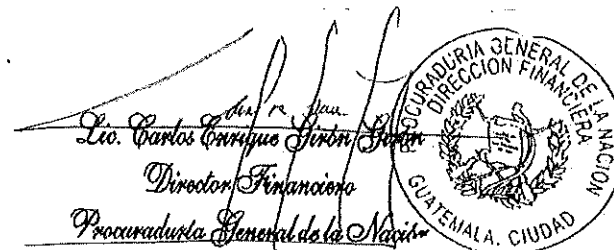 Lic. Carlos Enrique Girón
Director Financiero
Procuraduría General de la Nación
PROCURADURIA GENERAL DE LA NACION
DIRECCION FINANCIERA
GUATEMALA, CIUDAD